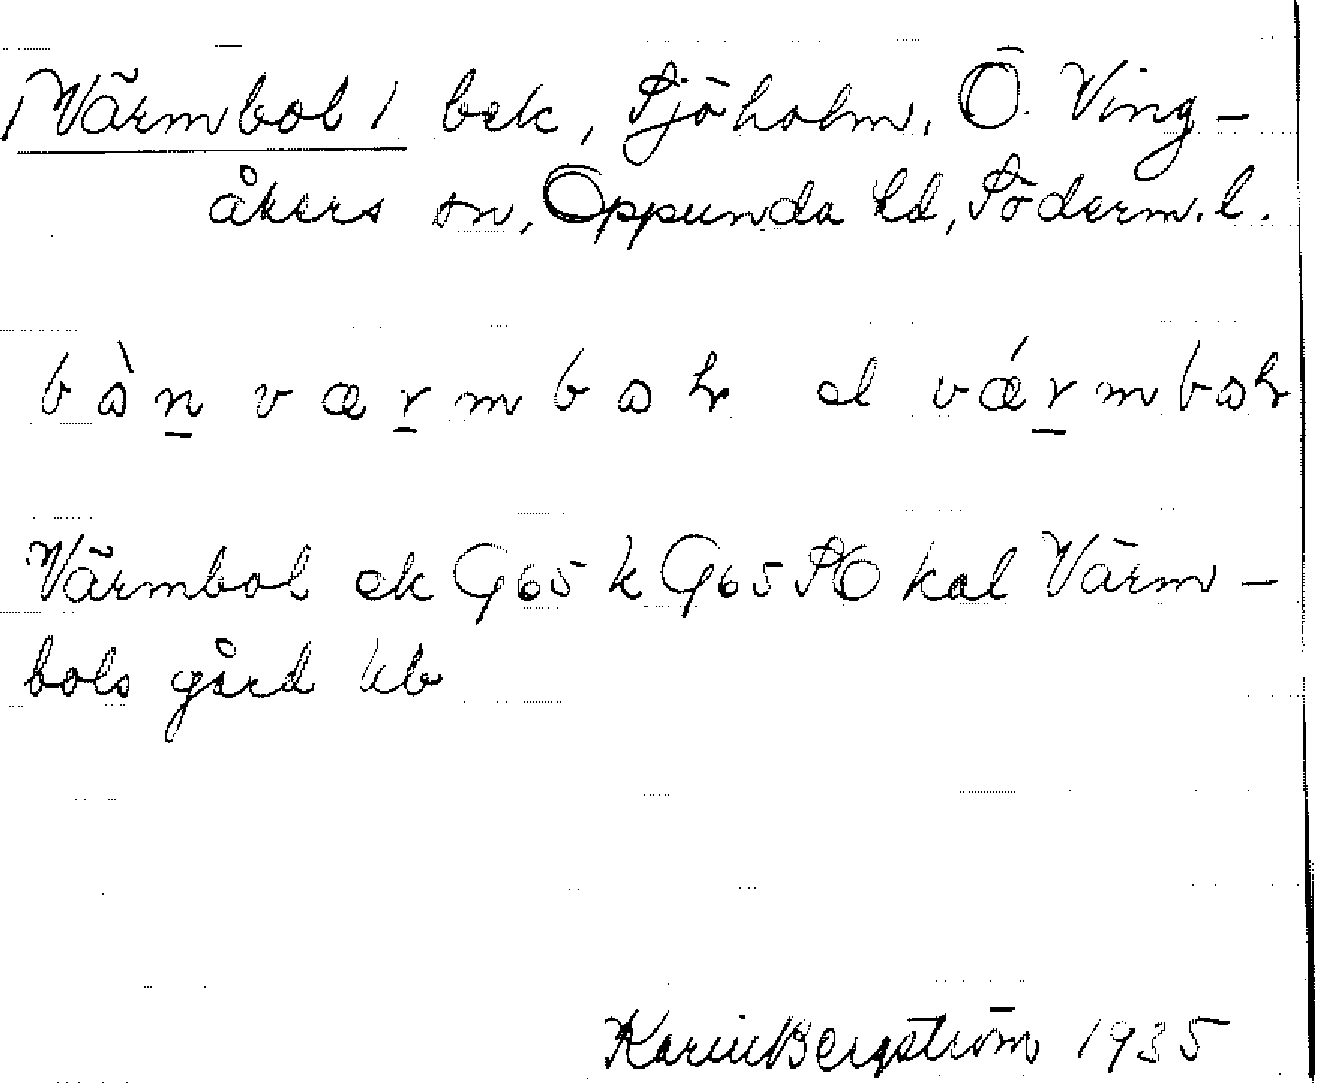 /Värmbol/ bek, Sjöholm, Ö. Ving-
åkers sn, Oppunda hd, Söderm. l.
værmbo el vǽrmbo
Värmbol ek G65 k G65 SO kal Värm-
bols gård kb
Karin Bergström 1935